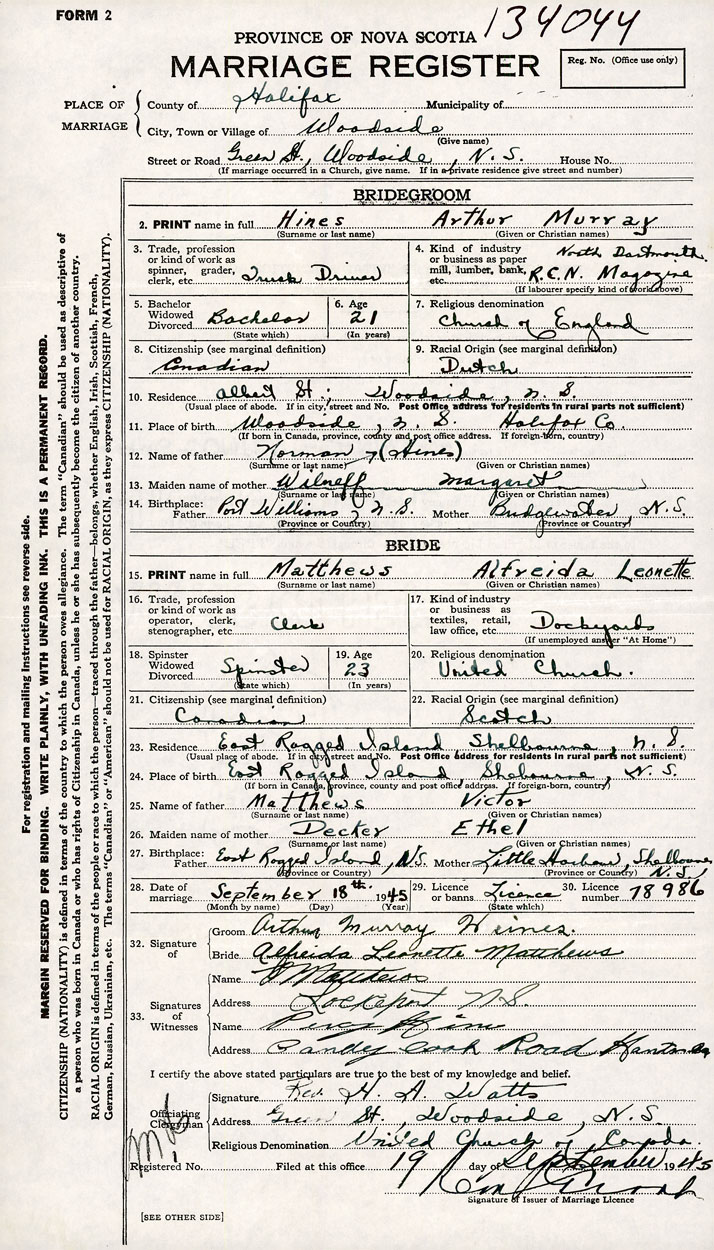 FORM 2
134044
PROVINCE OF NOVA SCOTIA
MARRIAGE REGISTER
Reg. No. (Office use only)
PLACE OF MARRIAGE
County of Halifax Municipality of
City, Town or Village of Woodside
(Give name)
Street or Road Green St., Woodside, N.S. House No.
(If marriage occurred in a Church, give name. If in a private residence give street and number)
BRIDEGROOM
2. PRINT name in full Hines Arthur Murray
(Surname or last name) (Given or Christian names)
3. Trade, profession or kind of work as spinner, grader, clerk, etc. Truck Driver
4. Kind of industry or business as paper mill, lumber, bank, etc. North Dartmouth R.C.N. Magazine
(If labourer specify kind of work above)
5. Bachelor Widowed Divorced Bachelor
(State which)
6. Age 21
(In years)
7. Religious denomination
Church of England
8. Citizenship (see marginal definition)
Canadian
9. Racial Origin (see marginal definition)
Dutch
10. Residence Albert St., Woodside, N.S.
(Usual place of abode. If in city, street and No. Post Office address for residents in rural parts not sufficient)
11. Place of birth Woodside, N.S. Halifax Co.
(If born in Canada, province, county and post office address. If foreign-born, country)
12. Name of father Norman (Hines)
(Surname or last name) (Given or Christian names)
13. Maiden name of mother Wilneff Margaret
(Surname or last name) (Given or Christian names)
14. Birthplace: Father Port Williams, N.S. Mother Bridgewater, N.S.
(Province or Country) (Province or Country)
BRIDE
15. PRINT name in full Matthews Alfreida Leonette
(Surname or last name) (Given or Christian names)
16. Trade, profession or kind of work as operator, clerk, stenographer, etc. Clerk
17. Kind of industry or business as textiles, retail, law office, etc. Dockyards
(If unemployed answer "At Home")
18. Spinster Widowed Divorced Spinster
(State which)
19. Age 23
(In years)
20. Religious denomination
United Church.
21. Citizenship (see marginal definition)
Canadian
22. Racial Origin (see marginal definition)
Scotch
23. Residence East Ragged Island Shelbourne, N.S.
(Usual place of abode. If in city, street and No. Post Office address for residents in rural parts not sufficient)
24. Place of birth East Ragged Island, Shebourne, N.S.
(If born in Canada, province, county and post office address. If foreign-born, country)
25. Name of father Matthews Victor
(Surname or last name) (Given or Christian names)
26. Maiden name of mother Decker Ethel
(Surname or last name) (Given or Christian names)
27. Birthplace: Father East Ragged Island, N.S. Mother Little Harbour, Shelbourne N.S.
(Province or Country) (Province or Country)
28. Date of marriage September 18th. 1945
(Month by name) (Day) (Year)
29. Licence or banns Licence
(State which)
30. Licence number 78986
32. Signature of
Groom Arthur Murray Heines.
Bride Alfreida Leonette Matthews
33. Signatures of Witnesses
Name Matthews
Address Lockeport N.S.
Name
Address Cook Road
I certify the above stated particulars are true to the best of my knowledge and belief.
Officiating Clergyman
Signature Rev. H. A. Watts
Address Green St., Woodside, N.S.
Religious Denomination United Church of Canada.
Registered No. Filed at this office 19 day of September 1945
Signature of Issuer of Marriage Licence
[SEE OTHER SIDE]
For registration and mailing instructions see reverse side.
MARGIN RESERVED FOR BINDING. WRITE PLAINLY, WITH UNFADING INK. THIS IS A PERMANENT RECORD.
CITIZENSHIP (NATIONALITY) is defined in terms of the country to which the person owes allegiance. The term "Canadian" should be used as descriptive of
a person who was born in Canada or who has rights of Citizenship in Canada, unless he or she has subsequently become the citizen of another country.
RACIAL ORIGIN is defined in terms of the people or race to which the person—traced through the father—belongs, whether English, Irish, Scottish, French,
German, Russian, Ukrainian, etc. The terms "Canadian" or "American" should not be used for RACIAL ORIGIN, as they express CITIZENSHIP (NATIONALITY).